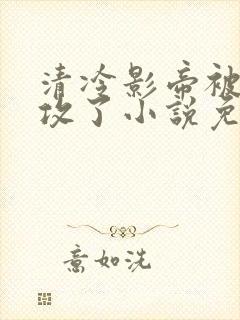 清冷影帝被
攻了小说免
意如洗